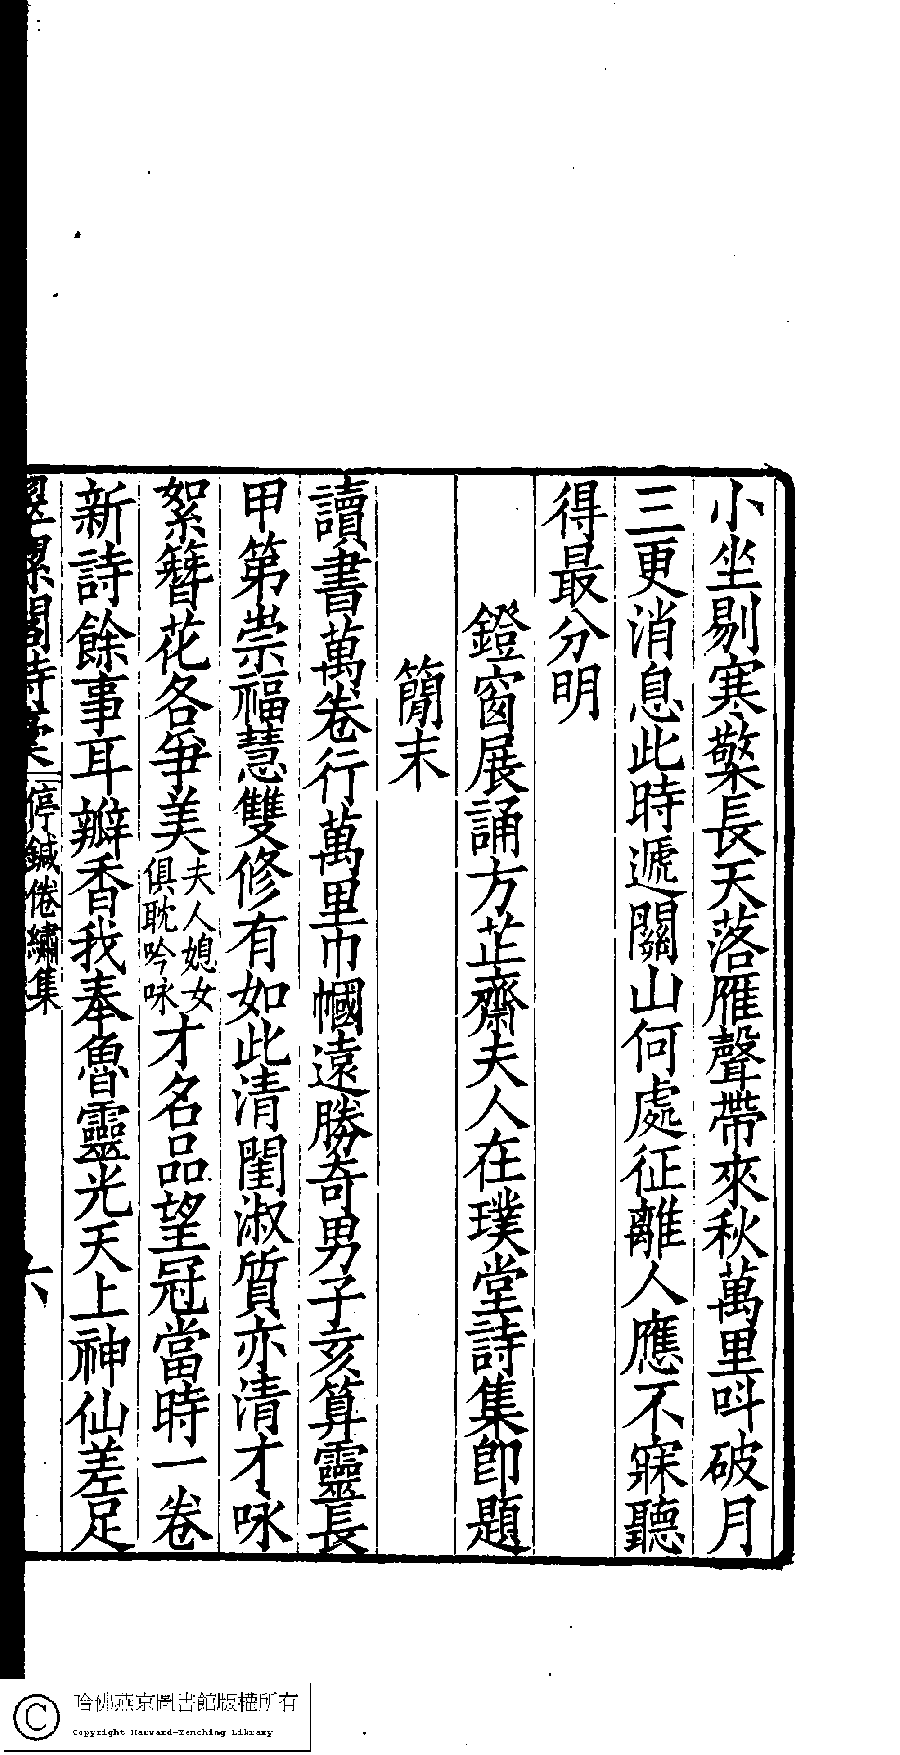 小坐剔寒檠長天落雁聲帶來秋萬里呌破月
三更消息此時遞關山何處征離人應不寐聽
得最分明
鐙窗展誦方芷齋夫人在璞堂詩集卽題
簡末
讀書萬卷行萬里巾幗遠勝奇男子亥算靈長
甲第崇福慧雙修有如此清閨淑質亦清才咏
絮簪花各爭美夫人媳女俱耽吟咏才名品望冠當時一卷
新詩餘事耳瓣香我奉魯靈光天上神仙差足
翠螺閣詩稾 停鍼倦繡集 六
哈佛燕京圖書館版權所有
Copyright Harvard-Yenching Library